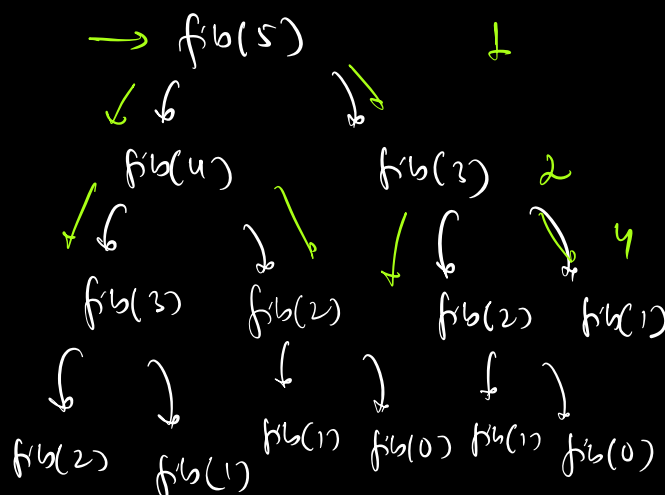 fib(5) 1
fib(4) fib(3) 2
4
fib(3) fib(2) fib(2) fib(1)
fib(2) fib(1) fib(1) fib(0) fib(1) fib(0)